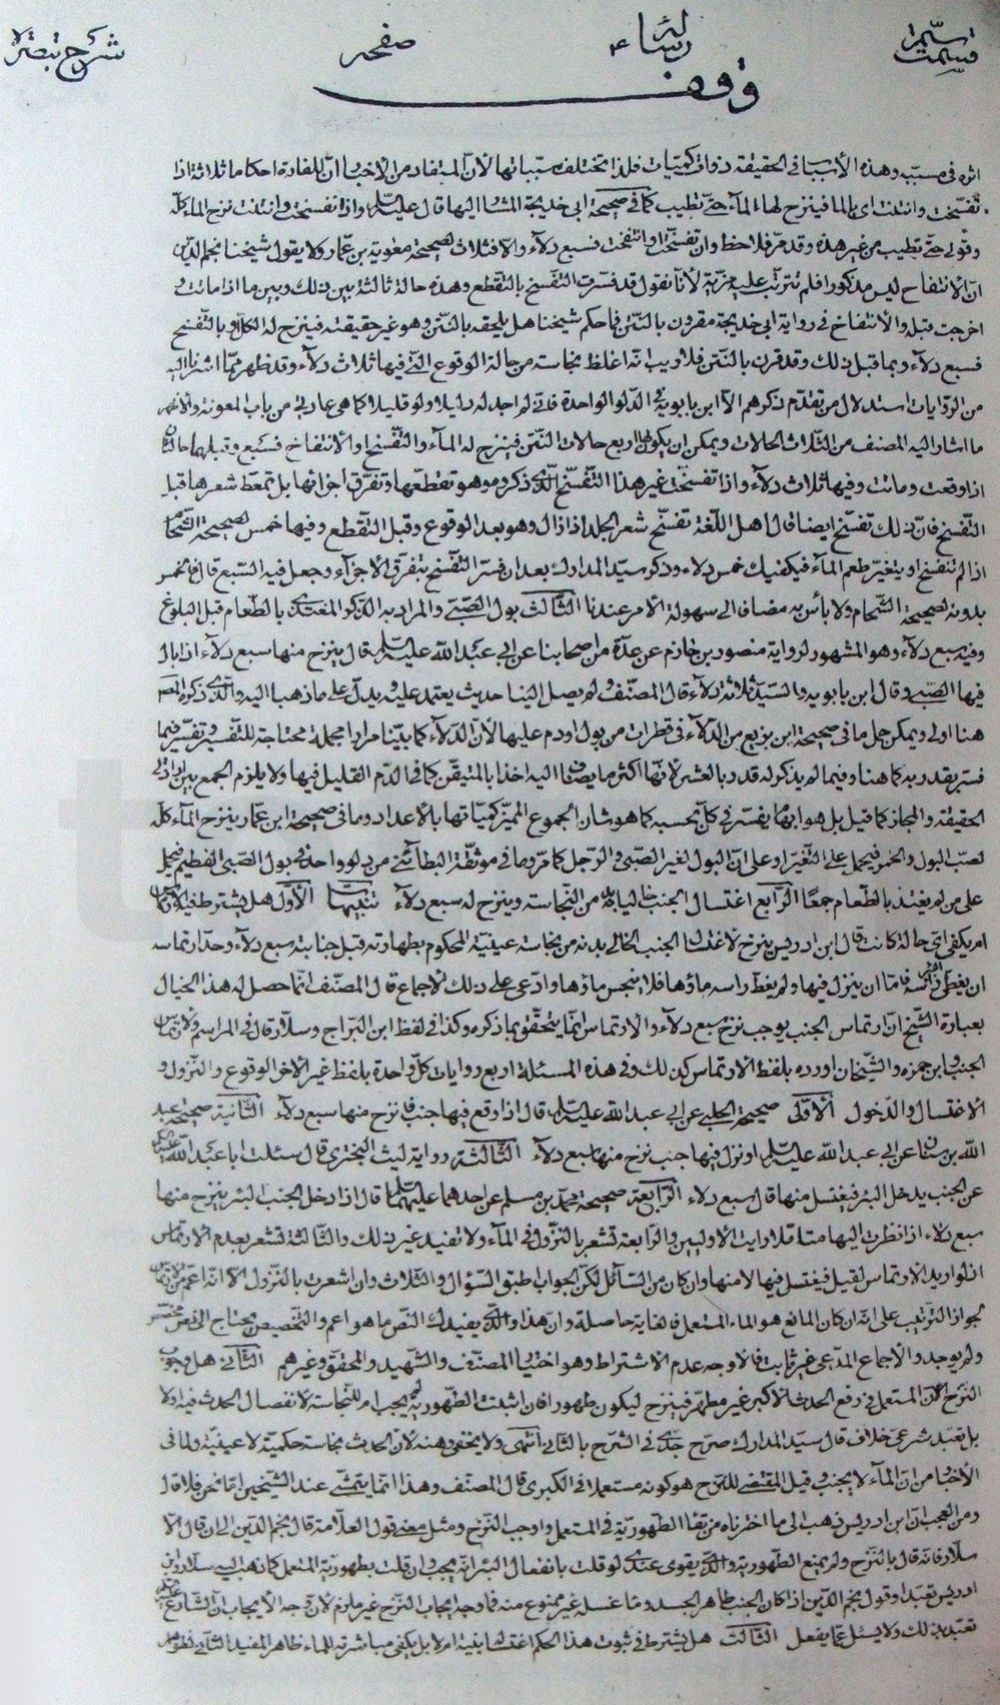 قسمت
رساله
صفحه
شرح تبصرة
وقف
اثره فى مسببه وهذه الأسباب فى الحقيقة ذوات كميّات فلذا تختلف مسبباتها لأنّ المستفاد من الأخبار انّ للفارة احكاما ثلاثة اذا
تفسّخت وانتنت اى الماء فينزح لها الماء حتى تطيب كما فى صحيحة ابى خديجة المشار اليها قال عليه السلام واذا تفسخت وانتنت نزح الماء كلّه
وقولى حتى تطيب من غير هذه وقد مرّ فلاحظ وان تفسّخت او انتفخت فسبع دلاء والا فثلاث لصحيحة معوية بن عمّار ولا يقول شيخنا نجم الدّين
انّ الانتفاخ ليس مذكورا فلم تترتّب عليه مزية لأنّا نقول قد فسّرت التفسّخ بالتقطع وهذه حالة ثالثة بين ذلك وبين ما اذا ماتت و
اخرجت قبله والأنتفاخ فى رواية ابى خديجة مقرون بالنّتن فما حكم شيخنا هل يلحقه بالنّتن وهو غير حقيقته فينزح له الكلّ او بالتّفسّخ
فسبع دلاء وبما قبل ذلك وقد قرن بالنّتن فلا ريب انّه اغلظ نجاسته من حالة الوقوع الّتى فيها ثلاث دلاء وقد ظهر ممّا اشرنا اليه
من الرّوايات استدلال من تقدّم ذكرهم الّا ابن بابويه فى الدّلو الواحدة فانّى لم اجد له دليلا ولو قليلا كما هى عادتى من باب المعونة
ما اشار اليه المصنف من الثّلاث الحالات ويمكن ان يكون لها اربع حالات النّتن فينزح له الماء والتّفسّخ او الأنتفاخ فسبع وقبلهما
اذا وقعت وماتت وفيها ثلاث دلاء واذا تفسخت غير هذا التفسّخ الّذى ذكروه وهو تقطّعها وتفرّق اجزائها بل تمعّط شعرها قبل
التّفسّخ فانّ ذلك تفسّخ ايضا قال اهل اللّغة تفسّخ شعر الجلد اذا زال وهو بعد الوقوع وقبل التّقطع وفيها خمس لصحيحة الشّحّام
اذا لم تتفسّخ او يتغيّر طعم الماء فيكفيك خمس دلاء وذكر سيّد المدارك بعد ان فسّر التّفسّخ بتفرّق الأجزاء وجعل فيه السّبع قال فالخمس
بدونه لصحيحة الشّحّام ولا بأس به مضافا الى سهولة الأمر عندنا الثّالث بول الصّبى والمراد به الذّكر المغتذى بالطّعام قبل البلوغ
وفيه سبع دلاء وهو المشهور لرواية منصور بن حازم عن عدّة من اصحابنا عن ابى عبد الله عليه السلام قال ينزح منها سبع دلاء اذا بال
فيها الصّبى وقال ابن بابويه والسّيّد ثلاثة دلاء قال المصنّف ولم يصل الينا حديث يعتمد عليه ويدلّ على ما ذهبا اليه والّذى ذكره المص
هنا اولى ويمكن حمل ما فى صحيحة ابن بزيع من الدّلاء فى قطرات من بول او دم عليها لأنّ الدّلاء كما بيّنا مرارا مجملة محتاجة للتّفسير وتفسّر فيما
فسّر بقدر به كما هنا وفيما لم يذكر له قدر بالعشر لأنّها اكثر ما يضاف اليه اخذا بالمتيقّن كما فى الدّم القليل فيها ولا يلزم الجمع بين ارادتى
الحقيقة والمجاز كما قيل بل هو ابهام يفسّر فى كلّ بحسبه كما هو شان الجموع المميّز كميّاتها بالأعداد وما فى صحيحة ابن عمّار ينزح الماء كلّه
لصبّ البول والخمر فيحمل على التغيّر او على انّ البول لغير الصّبى والرّجل كما مرّ وما فى موثّقة البطائنى من دلو واحد فى بول الصّبى الفطيم فيحمل
على من لم يغتذ بالطّعام جمعًا الرّابع اغتسال الجنب الخالى بدنه من النّجاسة وينزح له سبع دلاء تنبيهات الأوّل هل يشترط فيه الارتماس
ام يكفى اىّ حالة كانت قال ابن ادريس ينزح لاغتسال الجنب الخالى بدنه من نجاسة عينيّة المحكوم بطهارته قبل جنابته سبع دلاء وحدّ ارتماسه
ان يغطّى ماؤها رأسه فامّا ان ينزل فيها ولم يغطّ راسه ماؤها فلا ينجس ماؤها وادّعى على ذلك الاجماع قال المصنّف انّما حصل له هذا الخيال
بعبارة الشّيخ انّ ارتماس الجنب يوجب نزح سبع دلاء والارتماس انّما يتحقّق بما ذكره وكذا فى لفظ ابن البرّاج وسلّار قال فى المراسم ولارتماس
الجنب وابن حمزه والشّيخان اورده بلفظ الارتماس كذلك وفى هذه المسئلة اربع روايات كلّ واحدة بلفظ غير الاخر الوقوع والنّزول و
الاغتسال والدّخول الاولى صحيحة الحلبى عن ابى عبد الله عليه السلام قال اذا وقع فيها جنب فانزح منها سبع دلاء الثّانية صحيحة عبد
الله بن سنان عن ابى عبد الله عليه السلام او نزل فيها جنب نزح منها سبع دلاء الثالثة رواية ليث البخترى قال سئلت ابا عبد الله عليه السلام
عن الجنب يدخل البئر فيغتسل منها قال سبع دلاء الرّابعة صحيحة محمّد بن مسلم عن احدهما عليهما السلام قال اذا دخل الجنب البئر ينزح منها
سبع دلاء اذا نظرت اليها متامّلا رايت الاوليين والرّابعة تشعر بالنّزول فى الماء ولا تفيد غير ذلك والثّالثة تشعر بعدم الارتماس
اذ لو اريد الارتماس لقيل فيغتسل فيها لا منها وان كان من السّائل لكن الجواب طبق السّؤال والثّلاث وان اشعرت بالنّزول الّا انّه اعمّ من الارتماس
لجواز الترتيب على انّه ان كان المانع هو الماء المستعمل فالغاية حاصلة وان هذا والّذى يفيدك النّص ما هو اعم والتّخصيص محتاج الى نص مخصّص
ولم يوجد والاجماع المدّعى غير ثابت فالاوجه عدم الاشتراط وهو اختيار المصنّف والشّهيد والمحقّق وغيرهم الثّانى هل وجوب
النّزح لأنّ المستعمل فى رفع الحدث الاكبر غير مطهّر فينزح ليكون طهورا فان اثبت الطّهوريّة لم يجب ام للنّجاسة لانفصال الحدث فيه اولا
بل تعبّد شرعى خلاف قال سيّد المدارك صرّح جدّى فى الشّرح بالثّانى انتهى ولا يخفى وهنه لأنّ الحدث نجاسة حكميّة لا عينيّة ولما فى
الأخبار من انّ الماء لا يجنب وقيل المقتضى للنزح هو كونه مستعملا فى الكبرى قال المصنّف وهذا انّما يتمشّى عند الشّيخين امّا نحن فلا قال
ومن العجب انّ ابن ادريس ذهب الى ما اخترناه من بقاء الطّهوريّة فى المستعمل واوجب النّزح ومثل معنى قول العلّامة قال نجم الدّين الى ان قال الّا
سلّار فانّه قال بالنّزح ولم يمنع الطّهوريّة والّذى يقوى عندى لو قلت بانفعال البئر انّه يجب وان قلت بطهوريّة المستعمل كما ذهب اليه سلّار وابن
ادريس تعبّدا وقول نجم الدّين اذا كان الجنب طاهر الجسد وماء غسله غير ممنوع منه فما وجه ايجاب النّزح غير ملزم لأنّ وجه الأيجاب انّ الشّارع
تعبّد بذلك ولا يسئل عمّا يفعل الثّالث هل يشترط فى ثبوت هذا الحكم اغتساله بنيّة ام لا بل يكفى مباشرته للماء ظاهر المفيد الثّانى